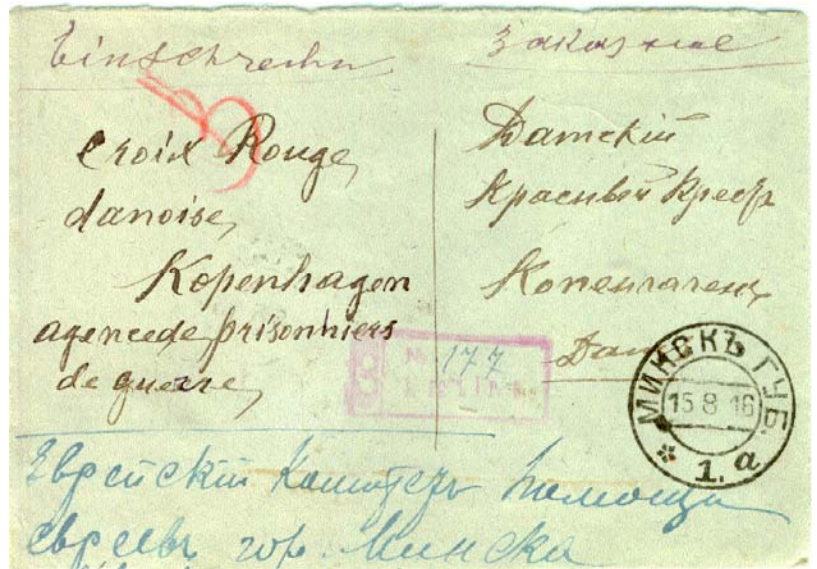 Einschreiben
Заказное
Croix Rouge,
danoise,
Kopenhagen
agence de prisonniers
de guerre,
Датскій
Красный Крестъ
Копенгагенъ
№ 177
МИНСКЪ ГУБ.
15 8 16
* 1. а
Еврейскій Комитетъ помощи
евреевъ гор. Минска